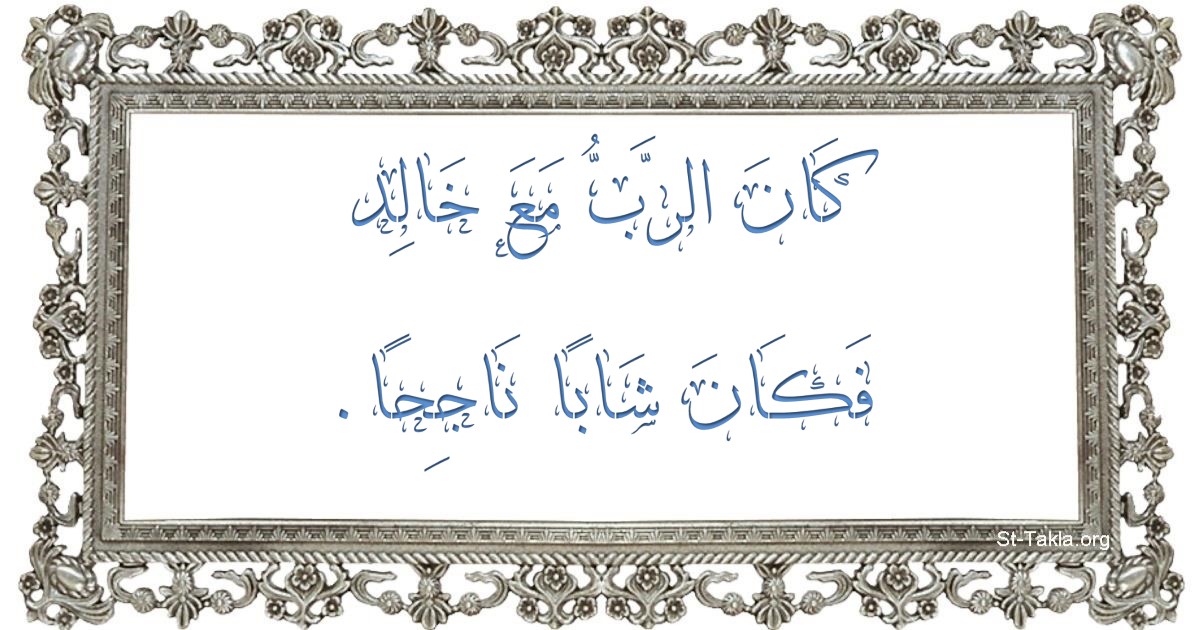 كَانَ الرَّبُّ مَعَ خَالِد
فَكَانَ شَابًا نَاجِحًا .
St-Takla.org